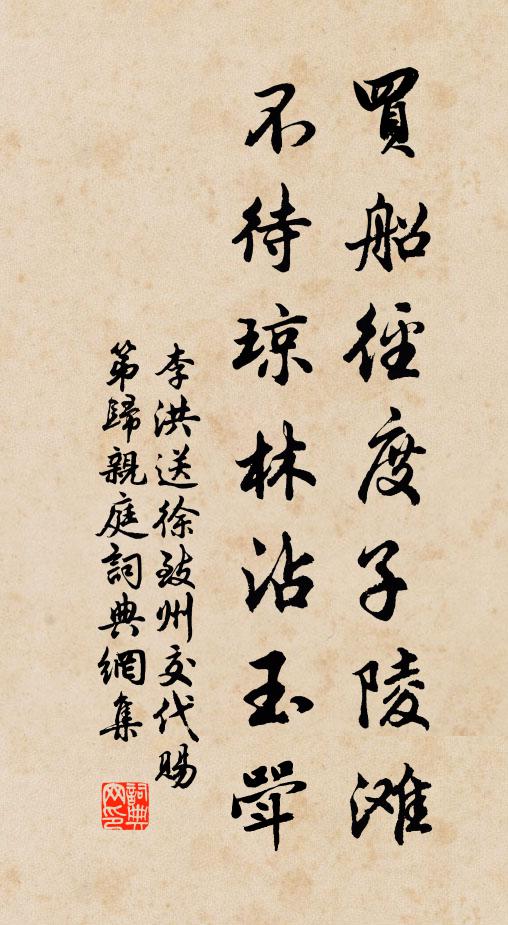 買船徑度子陵滩
不待琼林沾玉斝
李洪送徐致州交代賜
第歸親庭詞典網集
詞典网印